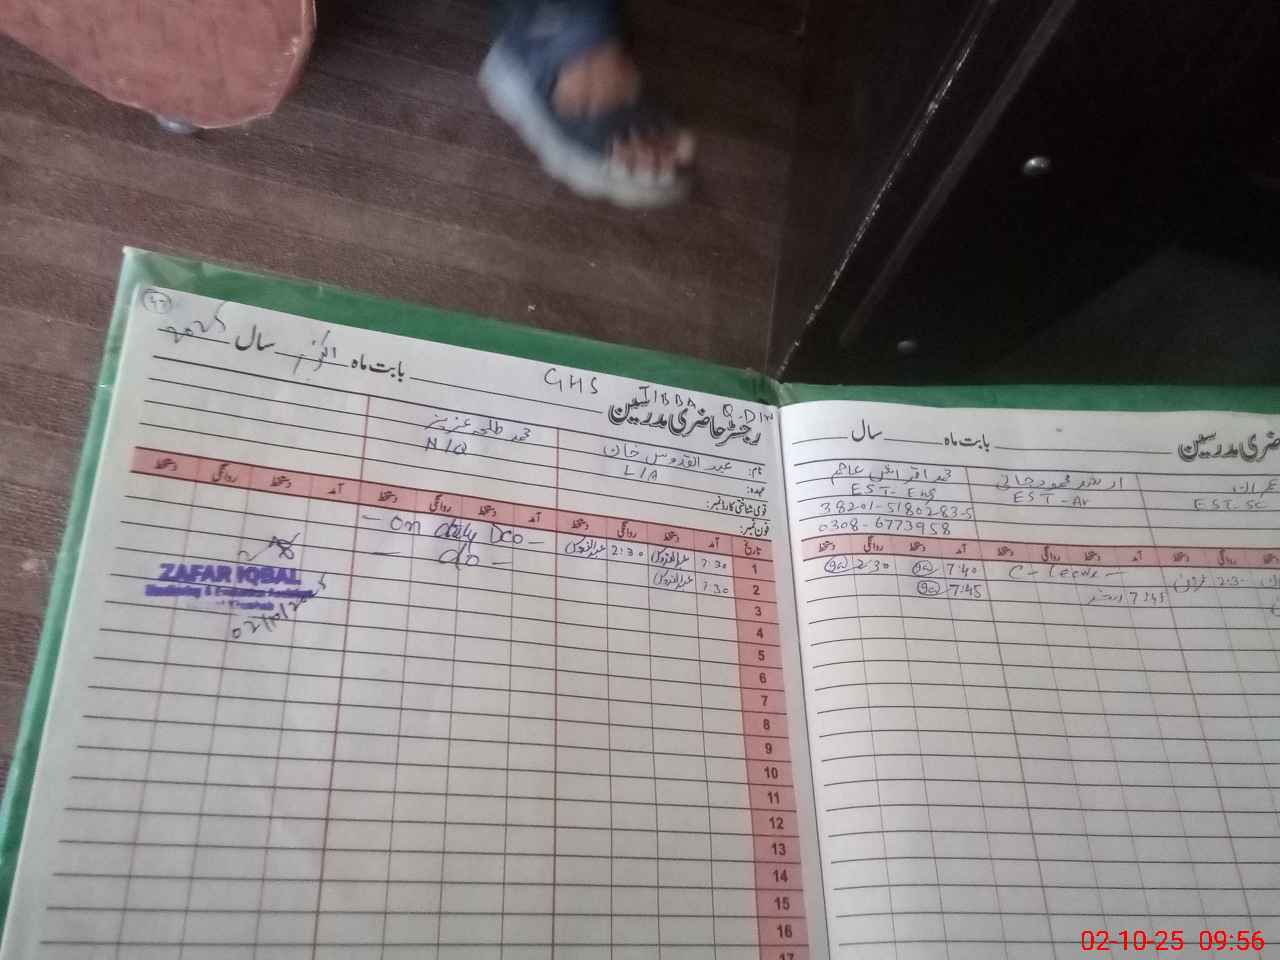 47
بابت ماہ اکتوبر سال 2025
GHS TIBBA Q.DIN
رجسٹر حاضری مدرسین
نام: عبدالقدوس خان محمد طلحہ عزیز
عہدہ: L/A N/Q
قومی شناختی کارڈ نمبر:
فون نمبر:
تاریخ آمد دستخط روانگی دستخط آمد دستخط روانگی دستخط آمد دستخط روانگی دستخط
1 7:30 عبدالقدوس 2:30 عبدالقدوس – on duty Dco –
2 7:30 عبدالقدوس – do –
3
4
5
6
7
8
9
10
11
12
13
14
15
16
17
ZAFAR IQBAL
Monitoring & Evaluation Assistant
Khushab
02/10/2025
بابت ماہ سال
حاضری مدرسین
ارشد محمود
EST-SC EST-Ar EST-Eng
38201-5180283-5
0308-6773958
آمد دستخط روانگی دستخط آمد دستخط روانگی دستخط
2:30 C-Leave 7:40 2:30
7:45 7:45
02-10-25 09:56